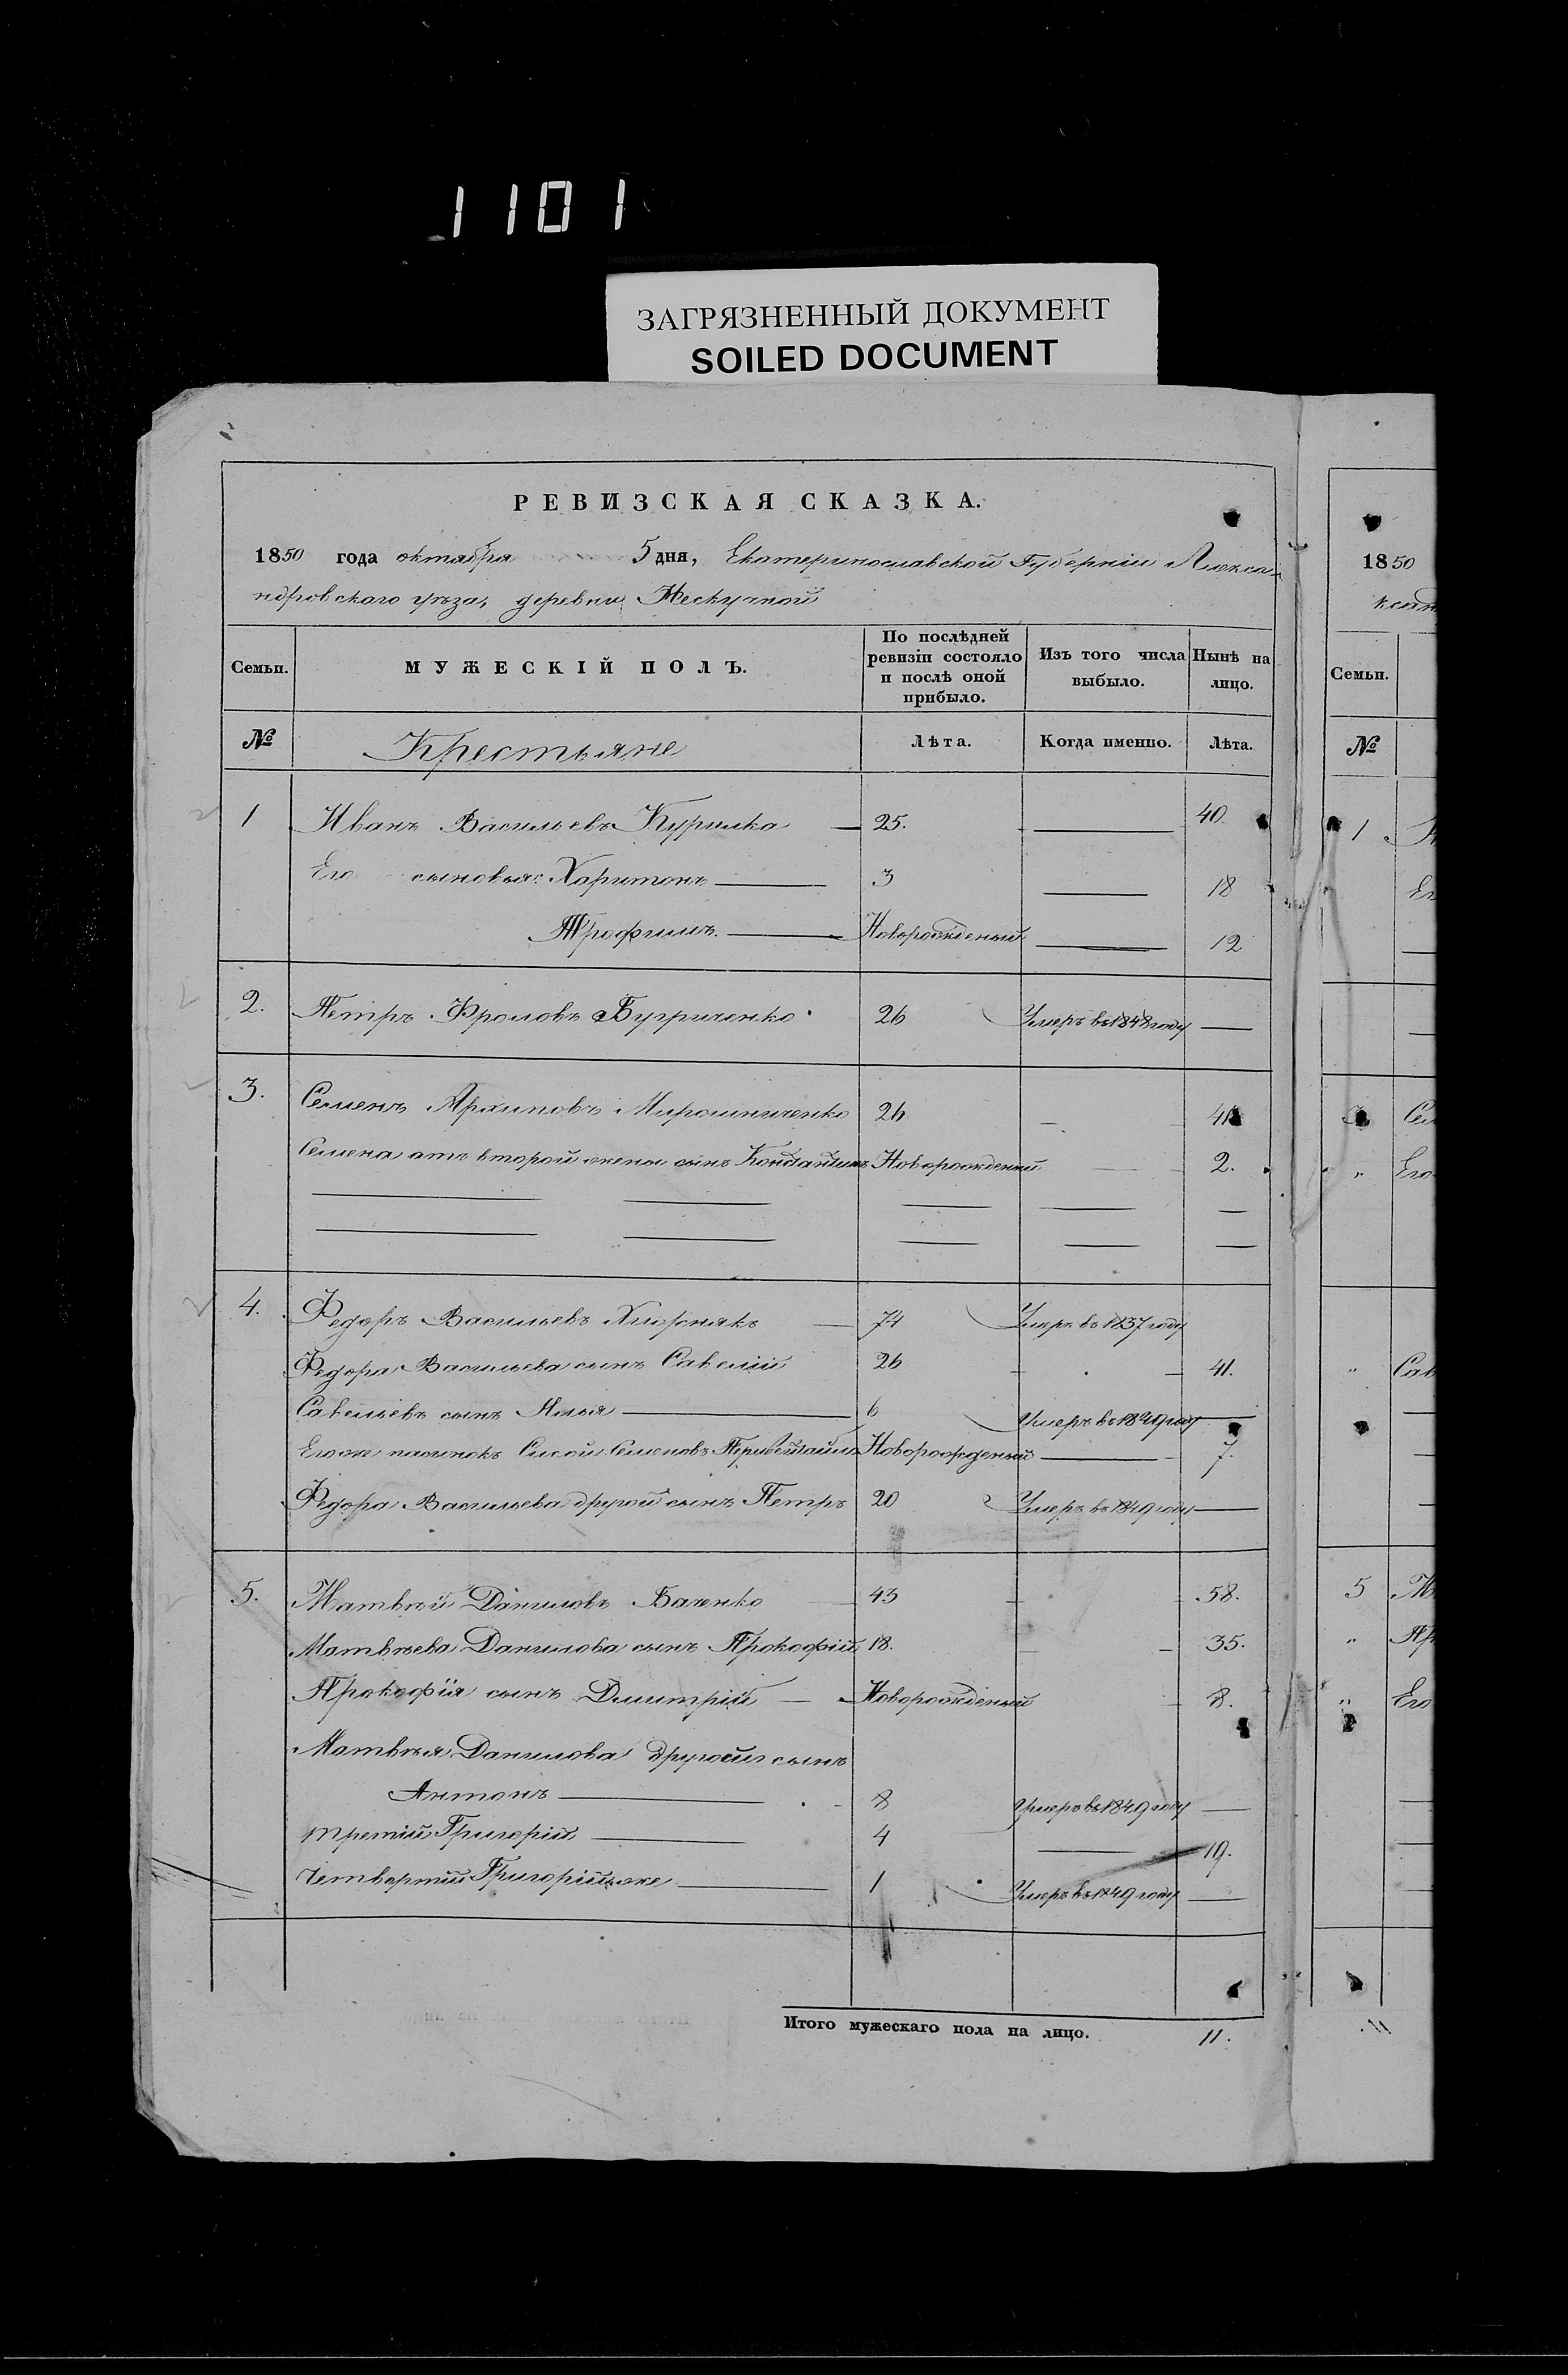 1101
ЗАГРЯЗНЕННЫЙ ДОКУМЕНТ
SOILED DOCUMENT
РЕВИЗСКАЯ СКАЗКА.
1850 года октября 5 дня, Екатеринославской Губернiи Алекса-
ндровского уѣза, деревни Нескучной
Семьи. МУЖЕСКIЙ ПОЛЪ. По послѣдней ревизiи состояло и послѣ оной прибыло. Изъ того числа выбыло. Нынѣ на лицо.
№ Крестьяне Лѣта. Когда именно. Лѣта.
1 Иванъ Васильевъ Курилка 25. 40.
Его сыновья: Харитонъ 3 18
Трофимъ. Новорожденый 12
2. Петръ Фроловъ 26 Умеръ въ 1848 году
3. Семенъ Архиповъ Мирошниченко 26 41
Семена отъ второй жены сынъ Константинъ Новорожденый 2.
4. Федоръ Васильевъ 74 Умеръ въ 1837 году
Федора Васильева сынъ Савелiй 26 41.
Савельевъ сынъ Илья 6 Умеръ въ 1849 году
Егоже пасынокъ Семеновъ Новорожденый 7.
Федора Васильева другой сынъ Петръ 20 Умеръ въ 1849 году
5. Матвѣй Даниловъ Баченко 43 58.
Матвѣева Данилова сынъ Прокофiй 18. 35.
Прокофiя сынъ Дмитрiй Новорожденый 8.
Матвѣя Данилова другой сынъ
Антонъ 8 Умеръ въ 1849 году
третiй Григорiй 4 19.
Четвертый Григорiй же 1 Умеръ въ 1849 году
Итого мужескаго пола на лицо. 11.
1850
Семьи.
№
1
Его
5
11